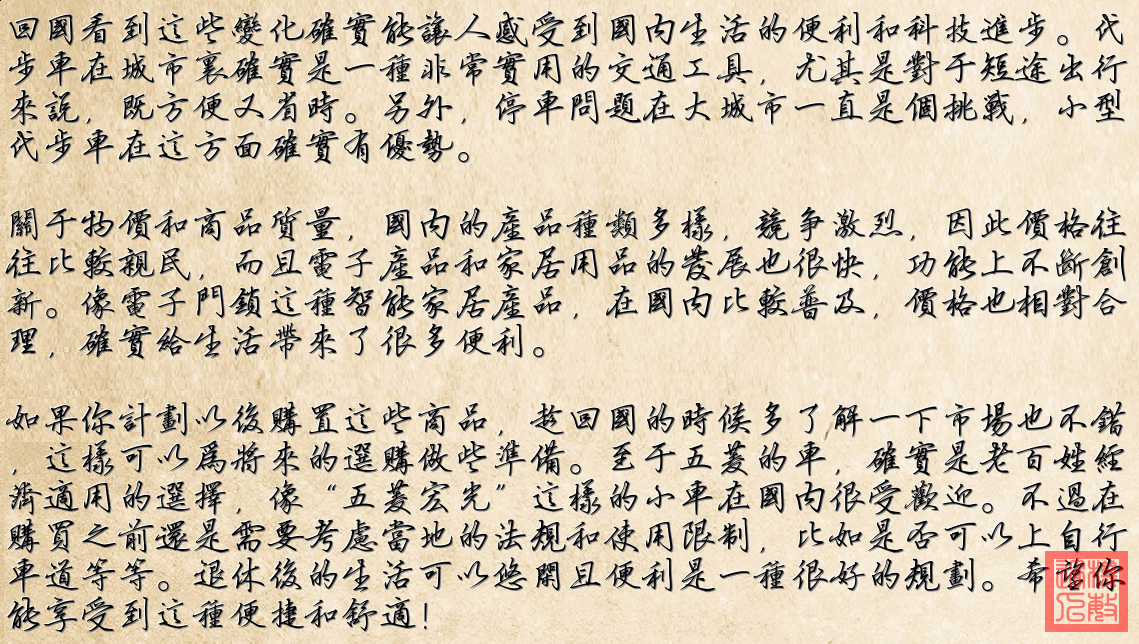 回國看到這些變化確實能讓人感受到國内生活的便利和科技進步。代
步車在城市裏確實是一種非常實用的交通工具，尤其是對于短途出行
來説，既方便又省時。另外，停車問題在大城市一直是個挑戰，小型
代步車在這方面確實有優勢。
關于物價和商品質量，國内的産品種類多樣，競争激烈，因此價格往
往比較親民，而且電子産品和家居用品的發展也很快，功能上不斷創
新。像電子門鎖這種智能家居産品，在國内比較普及，價格也相對合
理，確實給生活帶來了很多便利。
如果你計劃以後購置這些商品，趁回國的時候多了解一下市場也不錯
，這樣可以爲將來的選購做些準備。至于五菱的車，確實是老百姓經
濟適用的選擇，像“五菱宏光”這樣的小車在國内很受歡迎。不過在
購買之前還是需要考慮當地的法規和使用限制，比如是否可以上自行
車道等等。退休後的生活可以悠閑且便利是一種很好的規劃。希望你
能享受到這種便捷和舒適！